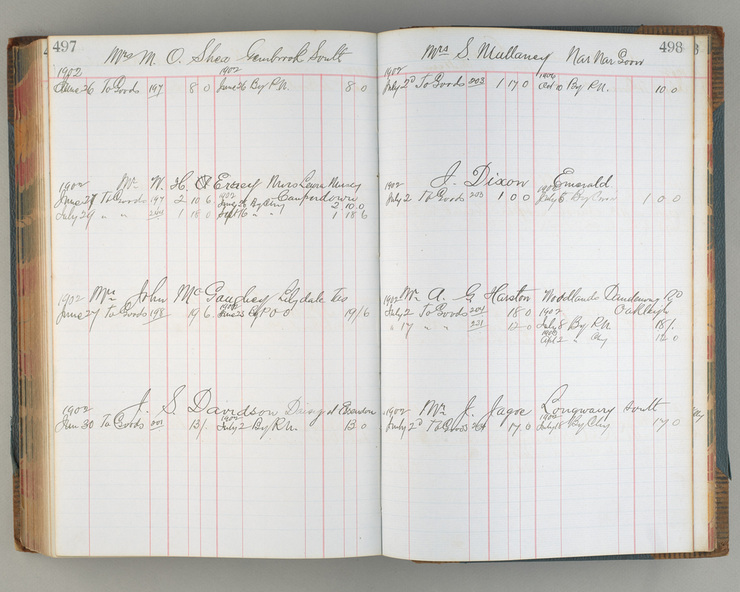 497
Mrs M. O. Shea Genbrook South
1902 1902
June 26 To Goods 197 8 0 June 26 By P.N. 8 0
1902 Mr W. H. Errey Nurs Camperdown
June 27 To Goods 197 2 10 6 1902 June 28 By Chq 2 10 0
July 29 " " 1 18 0 Sept 16 " " 1 18 6
1902 Mr John McGaughey Lilydale
June 27 To Goods 198 19 6 June 28 By P O O 19/6
J. S. Davidson Essendon
1902 1902
Jun 30 To Goods 201 13/. July 2 By P.N. 13 0
498
Mrs S. Mullaney Nar Nar Goon
1902 1902
July 2d To Goods 203 1 17 0 Oct 10 By P.N. 10 0
J. Dixon Emerald
1902 1902
July 2 To Goods 203 1 0 0 July 5 By 1 0 0
1902 Mr A. G. Harston Woodlands Dandenong Rd
Oakleigh
July 2 To Goods 204 18 0 1902 July 8 By P.N. 18/.
" 17 " " 221 12 0 " Chq 12 0
1902 Mr J. Jagoe Longwarry South
July 2d To Goods 17 0 1902 July 8 By Chq 17 0